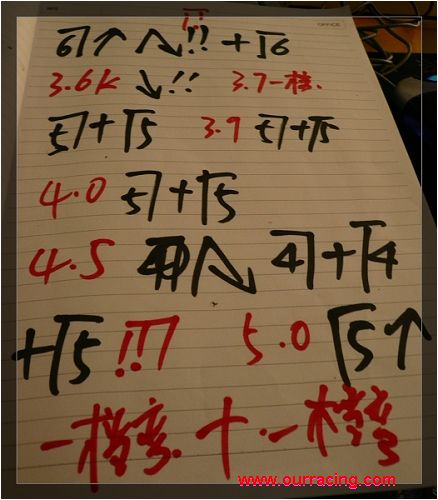 OFFICE
!!
6 ↑ !! + 6
3.6K ↓!! 3.7一档.
5 + 5 3.9 5 + 5
4.0 5 + 5
4.5 4 + 4
+ 5 !!! 5.0 5 ↑
一档弯. + 一档弯
www.ourracing.com